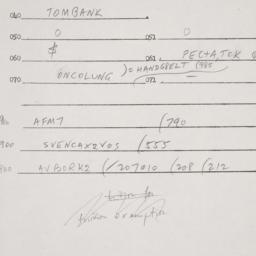 040 TOMBANK
050 0 051 0
060 $ 061 PECTA, TOK $
070 ONCOLUNG ) = HANDGBELT (980 071 —
AFM7 (790
900 SVENCAX2VOS (555
AVBORK2 (/207010 (208 (212